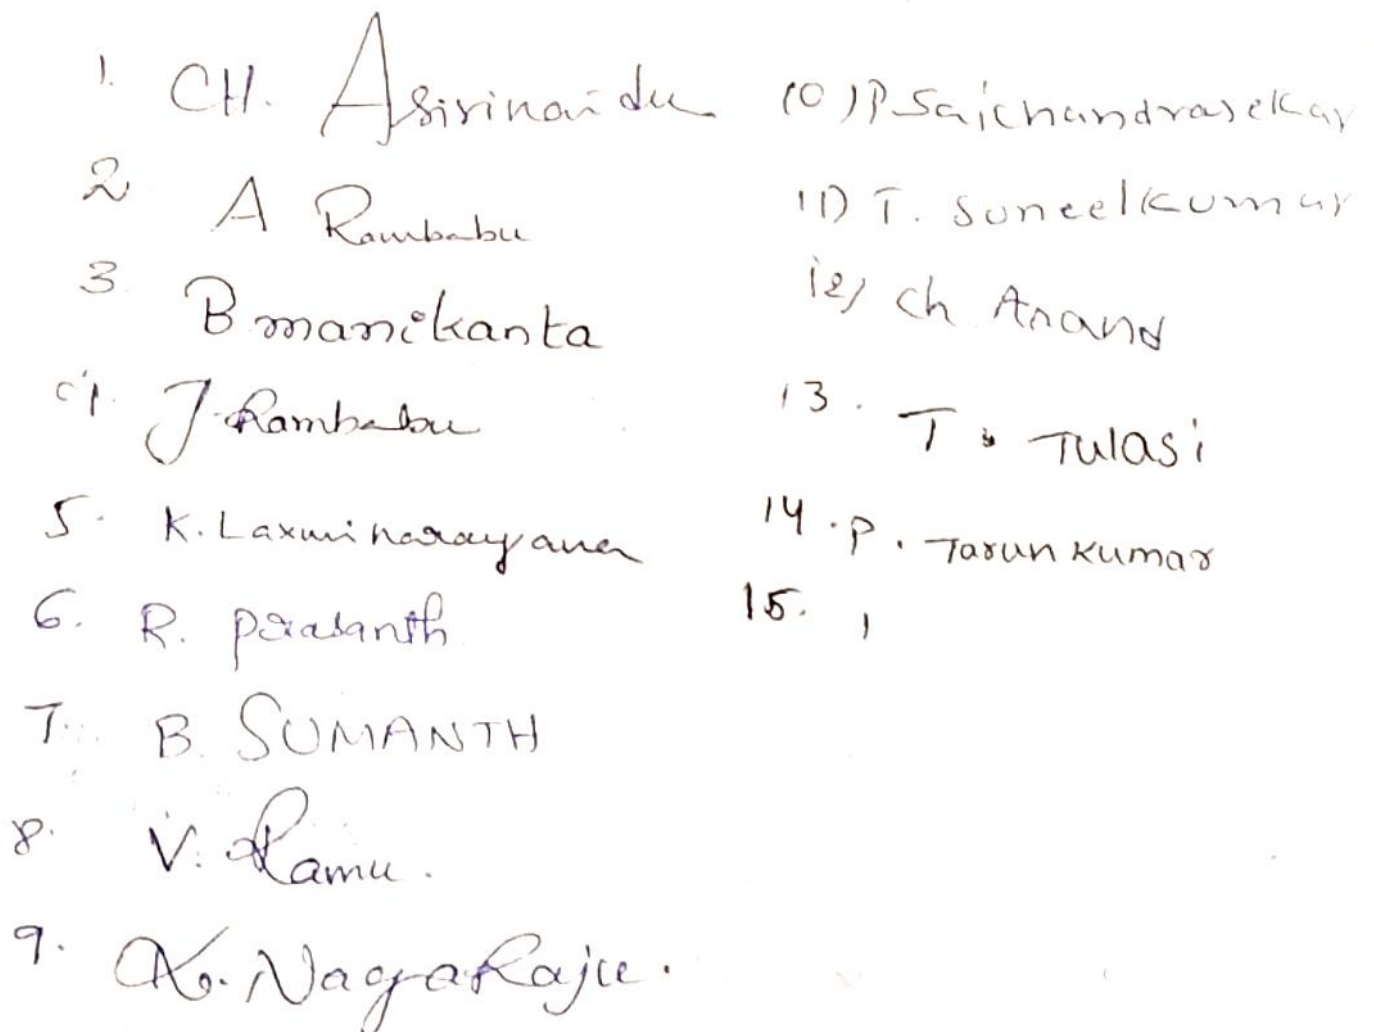 1. CH. Asirinaidu
2 A Rambabu
3 B manikanta
4. J. Rambabu
5. K. Laxminarayana
6. R. prasanth
7. B. SUMANTH
8. V. Ramu.
9. K. NagaRaju.
10) P Saichandrasekar
11) T. Suneelkumar
12) ch Anand
13. T. Tulasi
14. P. Tarun kumar
15.